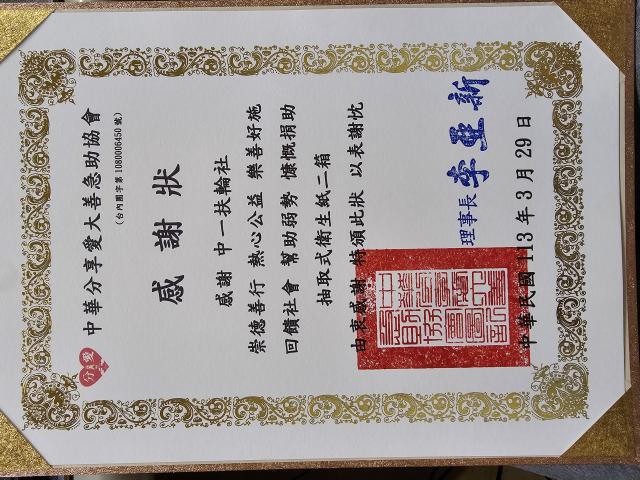 分享愛
中華分享愛大善急助協會
(台內團字第1080006450號)
感謝狀
感謝 中一扶輪社
崇德善行 熱心公益 樂善好施
回饋社會 幫助弱勢 慷慨捐助
抽取式衛生紙二箱
由衷感謝 特頒此狀 以表謝忱
理事長 李亞新
中華民國 113 年 3 月 29 日